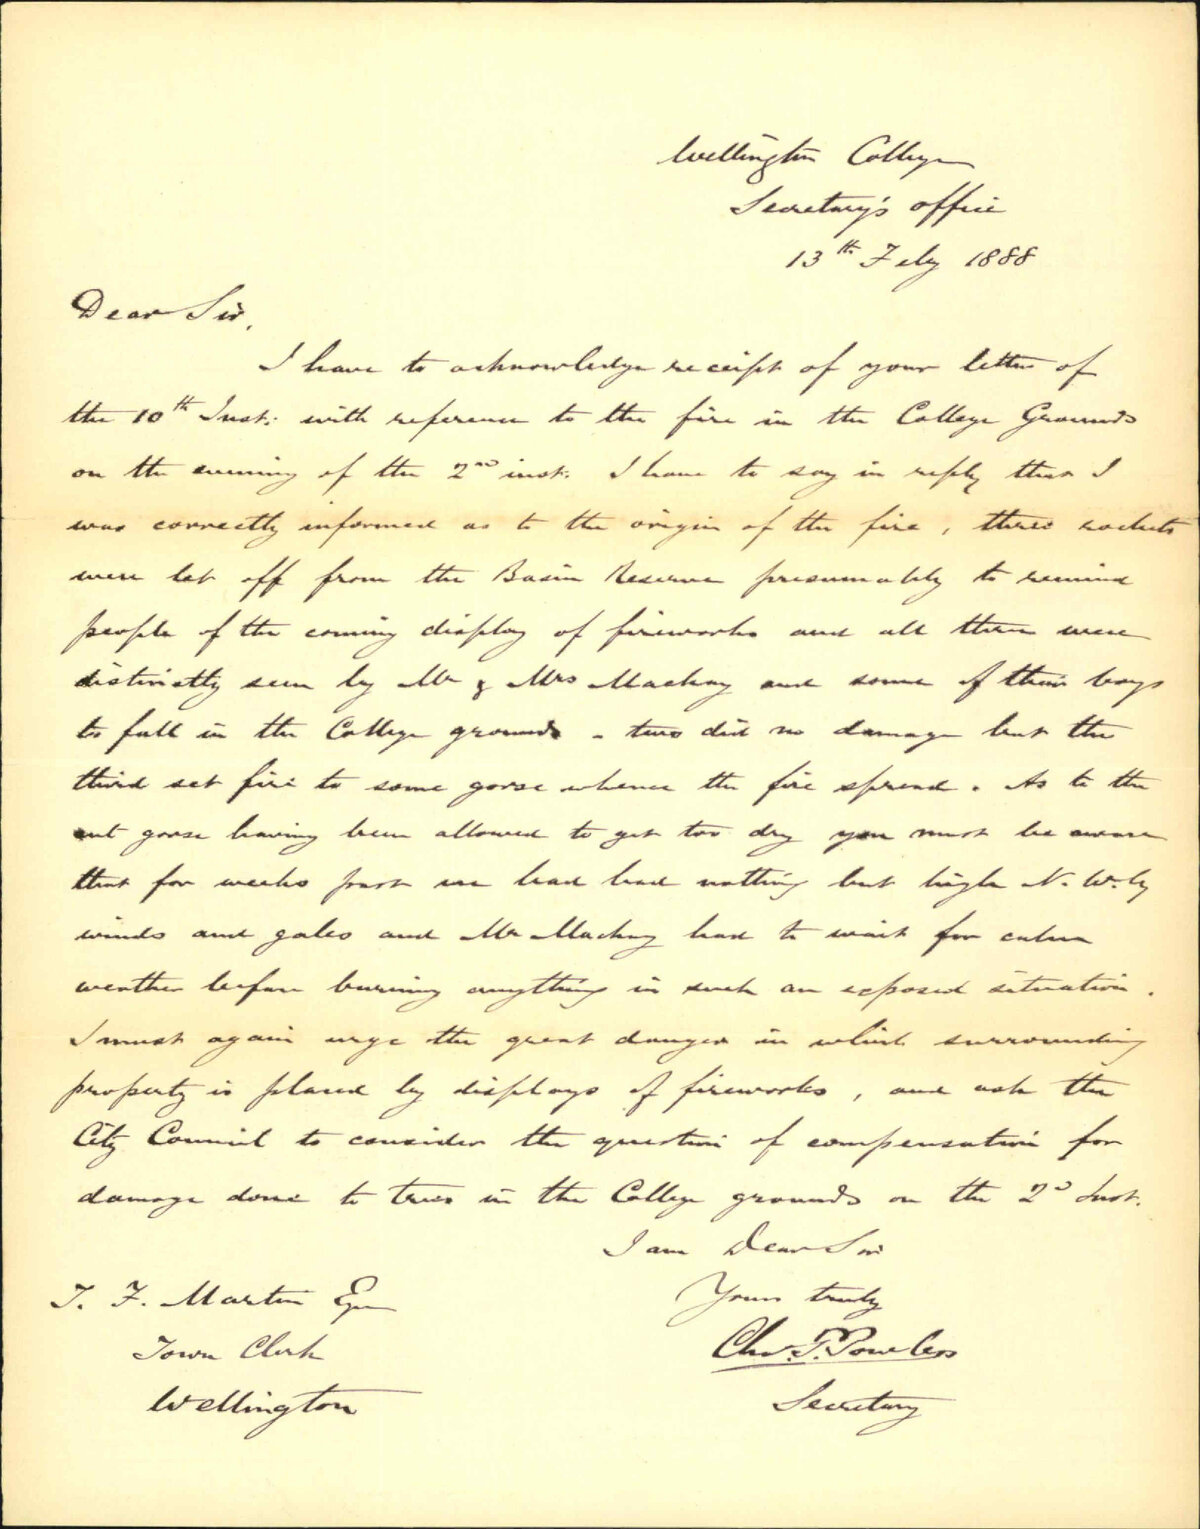 Wellington College
Secretary's office
13th Feby 1888
Dear Sir,
I have to acknowledge receipt of your letter of
the 10th Inst. with reference to the fire in the College Grounds
on the evening of the 2nd inst. I have to say in reply that I
was correctly informed as to the origin of the fire, three rockets
were let off from the Basin Reserve presumably to remind
people of the coming display of fireworks and all three were
distinctly seen by Mr & Mrs Mackay and some of their boys
to fall in the College grounds - two did no damage but the
third set fire to some gorse whence the fire spread. As to the
cut gorse having been allowed to get too dry you must be aware
that for weeks past we had had nothing but high N. W.ly
winds and gales and Mr Mackay had to wait for calm
weather before burning anything in such an exposed situation.
I must again urge the great danger in which surrounding
property is placed by displays of fireworks, and ask the
City Council to consider the question of compensation for
damage done to trees in the College grounds on the 2d Inst.
I am Dear Sir
Yours truly
Chas. P. Powles
Secretary
J. F. Martin Esqr
Town Clerk
Wellington